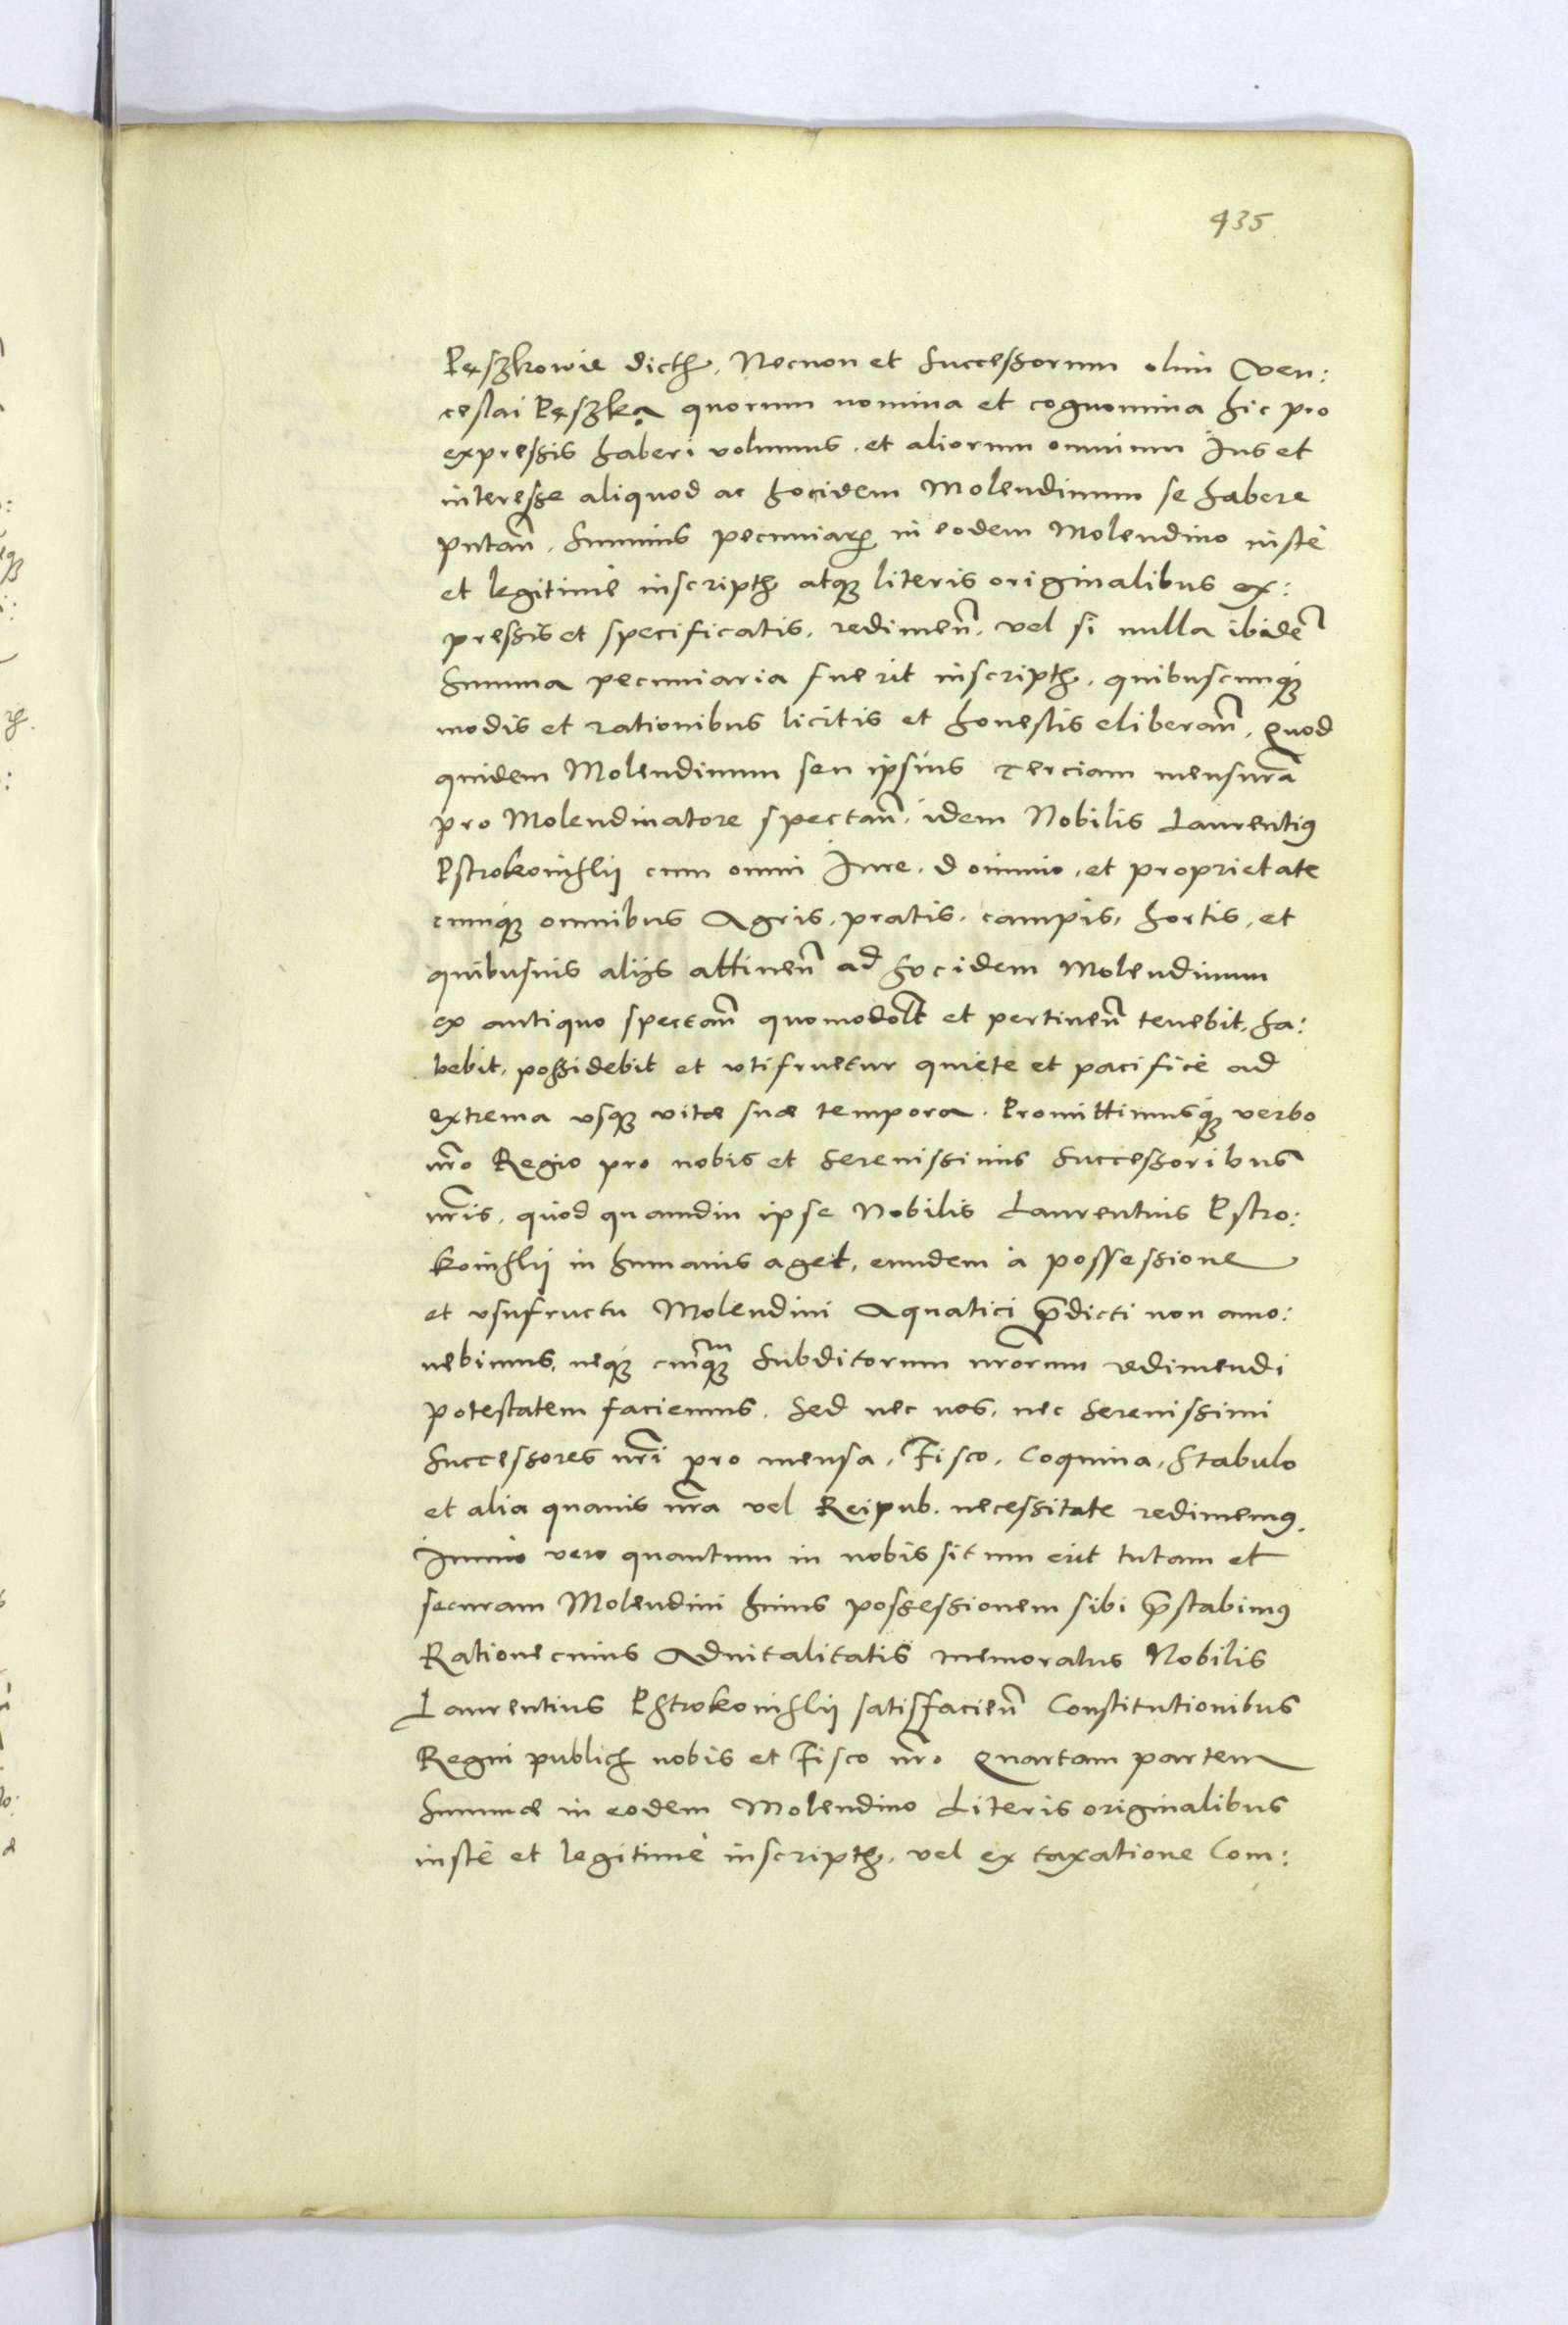 435
Pęszkowie dicth. Necnon et Successorum olim Ven:
ceslai Pęszką quorum nomina et cognomina hic pro
expressis haberi volumus, et aliorum omnium Ius et
interesse aliquod ac hocidem Molendinum se habere
putan̄. Summis pecuniarꝝ in eodem Molendino iuste
et legitimè inscripth atqꝫ literis originalibus ex:
pressis et specificatis, redimen̄, vel si nulla ibidē
Summa pecuniaria fuerit inscripth, quibuscunqꝫ
modis et rationibus licitis et honestis eliberan̄, Quod
quidem Molendinum seu ipsius terciam mensurā
pro Molendinatore spectan̄, idem Nobilis Laurentiꝰ
Pstrokoinhlii cum omni Iure, dominio, et proprietate
cumqꝫ omnibus Agris, pratis, campis, hortis, et
quibusuis aliis attinen̄ ad hocidem Molendinum
ex antiquo spectan̄ quomodolt et pertinen̄ tenebit, ha:
bebit, possidebit et vtifruetur quietè et pacificè ad
extrema vsqꝫ vitæ suæ tempora. Promittimusqꝫ verbo
nr̄o Regio pro nobis et Serenissimis Successoribus
nr̄is, quòd quamdiu ipse Nobilis Laurentius Pstro:
koinhlii in humanis aget, eundem à possessione
et vsufructu Molendini Aquatici p̄dicti non amo:
uebimus, neqꝫ cuiqꝫm Subditorum nr̄orum redimendi
potestatem faciemus. Sed nec nos, nec Serenissimi
Successores nr̄i pro mensa, Fisco, Coquina, Stabulo
et alia quauis nr̄a vel Reipub. necessitate redimemꝰ.
Immo vero quantum in nobis situm erit tutam et
securam Molendini huius possessionem sibi p̄stabimꝰ
Ratione cuius Aduitalitatis memoratus Nobilis
Laurentius Pstrokoinhlii satisfacien̄ Constitutionibus
Regni publich nobis et Fisco nr̄o Quartam partem
Summæ in eodem Molendino Literis originalibus
iustè et legitimè inscripth, vel ex taxatione Com: